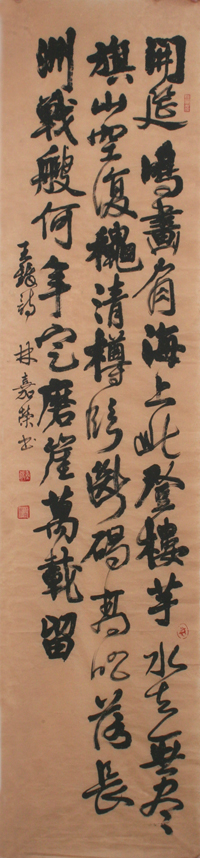 開筵鳴畫角海上此登樓芋水去無盡
旗山空復穐清樽臨斷碣高咏落長
洲戰艘何年定磨崖萬載留
王詩
林嘉榮书